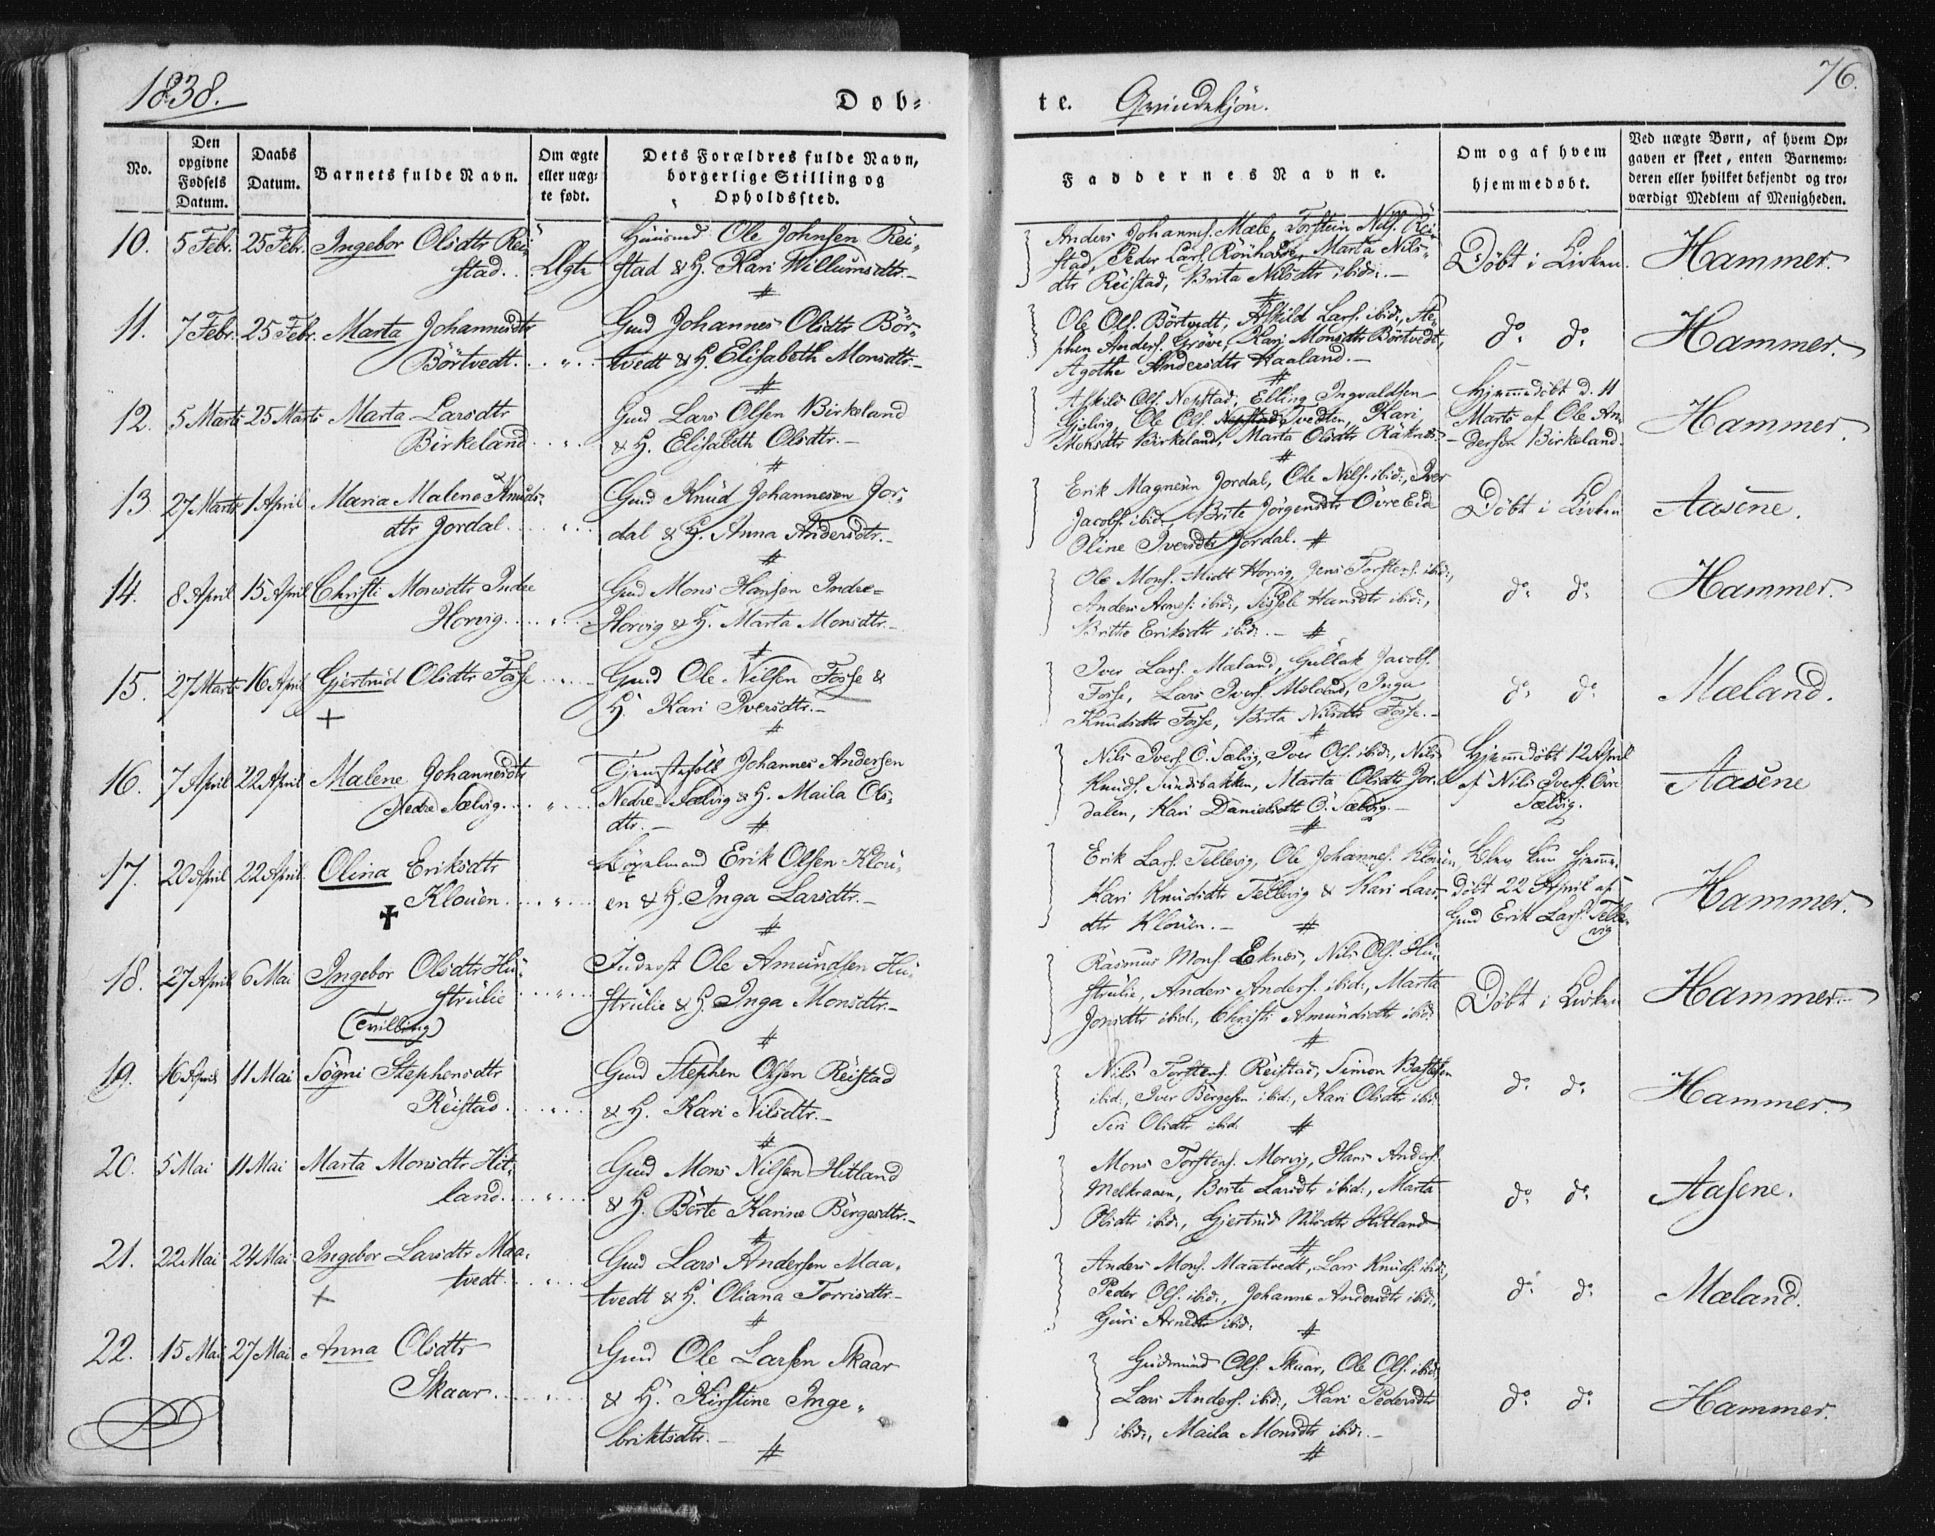 1838.
Døb-
te. Qvindekjøn.
76.
No.
Den opgivne Fødsels Datum.
Daabs Datum.
Barnets fulde Navn.
Om ægte eller uægte født.
Dets Forældres fulde Navn, borgerlige Stilling og Opholdssted.
Faddernes Navne.
Om og af hvem hjemmedøbt.
Ved uægte Børn, af hvem Opgaven er skeet, enten Barnemoderen eller hvilket bekjendt og troværdigt Medlem af Menigheden.
10. 5 Febr. 25 Febr. Ingebor Olsdtr Rei-
stad. Ægte
Huusmd Ole Johnsen Rei-
stad & H. Kari Willumsdtr.
Anders Johanns. Mæle, Torstein Nils. Rei-
stad, Peder Lars. Rönhovde, Marta Nils-
dtr Reistad, Brita Nilsdtr ibid.
Döbt i Kirken. Hammer.
11. 7 Febr. 25 Febr. Marta Johannesdtr
Börtvedt. "
Gmd Johannes Olsdtr Bör-
tvedt & H. Elisabeth Monsdtr.
Ole Ols. Börtvedt, Askild Lars. ibid., Ste-
phen Anders. Gröve, Kari Monsdtr Börtvedt,
Agathe Andersdtr Haaland.
do. do. Hammer.
12. 5 Marts 25 Marts Marta Larsdtr
Birkeland "
Gmd Lars Olsen Birkeland
& H. Elisabeth Olsdtr.
Askild Ols. Nepstad, Elling Ingvaldsen
Gjelvig, Ole Ols. Tvedten, Kari
Monsdtr Birkeland, Marta Olsdtr Räknes
Hjemmedöbt d. 11
Marts af Ole An-
dersen Birkeland.
Hammer
13 27 Marts 1 April Maria Malene Knuds-
dtr Jordal. "
Gmd Knud Johannesen Jor-
dal & H. Anna Andersdtr.
Erik Magnesen Jordal, Ole Nils. ibid., Iver
Jacobs. ibid., Brite Jörgensdtr Övre Eide
Oline Iversdtr Jordal.
Döbt i Kirken Aasene.
14. 8 April 15 April Christi Monsdtr Indre
Horvig. "
Gmd Mons Hansen Indre-
Horvig & H. Marta Monsdtr.
Ole Mons. Midt Horvig, Jens Torstens. ibid.,
Anders Arnes. ibid., Sissele Hansdtr ibid.,
Britte Eriksdtr ibid.
do. do. Hammer.
15. 27 Marts 16 April Gjertrud Olsdtr Fosse "
+
Gmd Ole Nilsen Fosse &
H. Kari Iversdtr.
Iver Lars. Mæland, Gullak Jacobs.
Fosse, Lars Ivers. Mæland, Inga
Knudsdtr Fosse, Brita Nilsdtr Fosse.
do. do. Mæland.
16. 7 April 22 April Malene Johannesdtr
Nedre Sælvig. "
Tjenstefolk Johannes Andersen
Nedre Sælvig & H. Maila Ols-
dtr.
Nils Ivers. Ö. Sælvig, Iver Ols. ibid., Nils
Knuds. Sundsbakken, Marta Olsdtr Jor-
dalen, Kari Danielsdtr Ö. Sælvig.
Hjemmedöbt 12 April
af Nils Ivers. Övre
Sælvig.
Aasene
17. 20 April 22 April Olina Eriksdtr
Klouen. "
Erik Olsen Klou-
en & H. Inga Larsdtr.
Erik Lars. Tellevig, Ole Johannes. Klouen,
Kari Knudsdtr Tellevig & Kari Lars-
dtr Klouen.
Blev kun hjemme-
döbt 22 April af
Gmd Erik Lars. Telle-
vig
Hammer.
18. 27 April 6 Mai Ingebor Olsdtr Hu-
strulie "
(Tvilling)
Inderst Ole Amundsen Hu-
strulie & H. Inga Monsdtr.
Rasmus Mons. Eknes, Nils Ols. Hu-
strulie, Anders Anders. ibid., Marta
Jonsdtr ibid., Christi Amundsdtr ibid.
Döbt i Kirken Hammer.
19. 16 April 11 Mai Sögni Stephensdtr
Reistad. "
Gmd Stephen Olsen Reistad
& H. Kari Nilsdtr.
Nils Torstens. Reistad, Simon
ibid., Iver Börgesen ibid., Kari Olsdtr ibid.
Siri Olsdtr ibid.
do. do. Hammer.
20. 5 Mai 11 Mai Marta Monsdtr Hit-
land. "
Gmd Mons Nilsen Hitland
& H. Berte Karine Börgesdtr.
Mons Torstens. Morvig, Hans Anders.
Melkraaen, Berte Larsdtr ibid., Marta
Olsdtr ibid., Gjertrud Nilsdtr Hitland
do. do. Aasene.
21. 22 Mai 24 Mai Ingebor Larsdtr Maa-
tvedt. "
+
Gmd Lars Andersen Maa-
tvedt & H. Oliana Torrisdtr.
Anders Mons. Maatvedt, Lars Knuds. ibid.,
Peder Ols. ibid., Johanne Andersdtr ibid.,
Guri Arnedtr ibid.
do. do. Mæland.
22. 15 Mai 27 Mai Anna Olsdtr
Skaar. "
Gmd Ole Larsen Skaar
& H. Kirstine Inge-
briktsdtr.
Gudmund Ols. Skaar, Ole Ols. ibid.
Lars Anders. ibid., Kari Pedersdtr
ibid., Maila Monsdtr ibid.
do. do. Hammer.